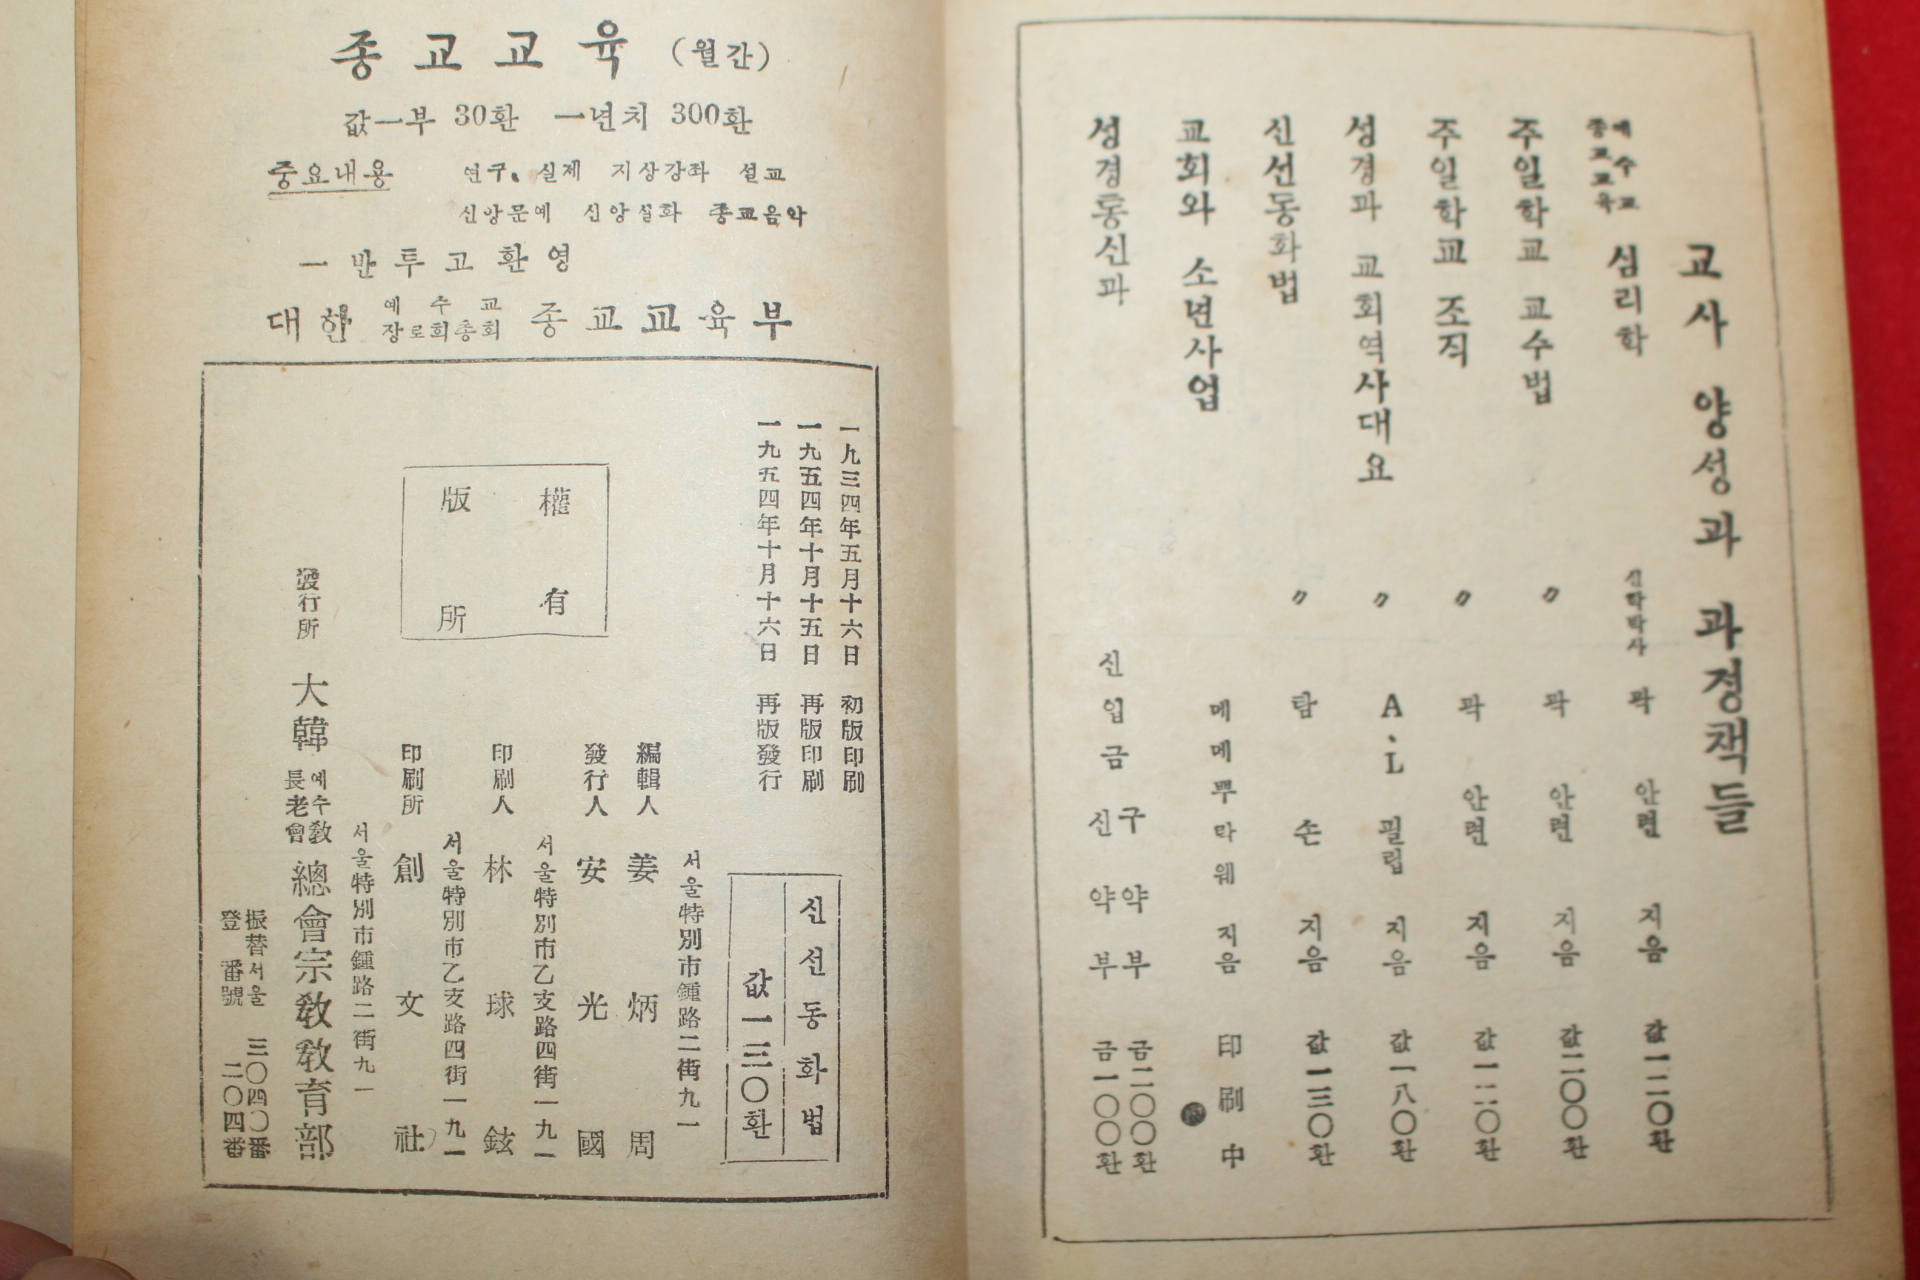 교사 양성과 과정책들
예수교
종교교육
심리학 신학박사 곽안련 지음 값一二〇환
주일학교 교수법 〃 곽안련 지음 값二〇〇환
주일학교 조직 〃 곽안련 지음 값一二〇환
성경과 교회역사대요 〃 A、L 필립 지음 값一八〇환
신선동화법 〃 탐손 지음 값一三〇환
교회와 소년사업 메메뿌락웨 지음 印刷中
성경통신과 신입금
구약부 금二〇〇환
신약부 금一〇〇환
종교교육 (월간)
값一부 30환 一년치 300환
중요내용 연구、실제 지상강좌 설교
신앙문예 신앙설화 종교음악
一반투고환영
대한 예수교 장로회총회 종교교육부
一九三四年五月十六日 初版印刷
一九五四年十月十五日 再版印刷
一九五四年十月十六日 再版發行
신선동화법
값一三〇환
權有
版所
서울特別市鍾路二街九一
編輯人 姜炳周
發行人 安光國
서울特別市乙支路四街一九一
印刷人 林球鉉
서울特別市乙支路四街一九一
印刷所 創文社
서울特別市鍾路二街九一
發行所 大韓 예수敎 長老會 總會宗敎敎育部
振替서울 三〇四〇番
登番號 二〇四番